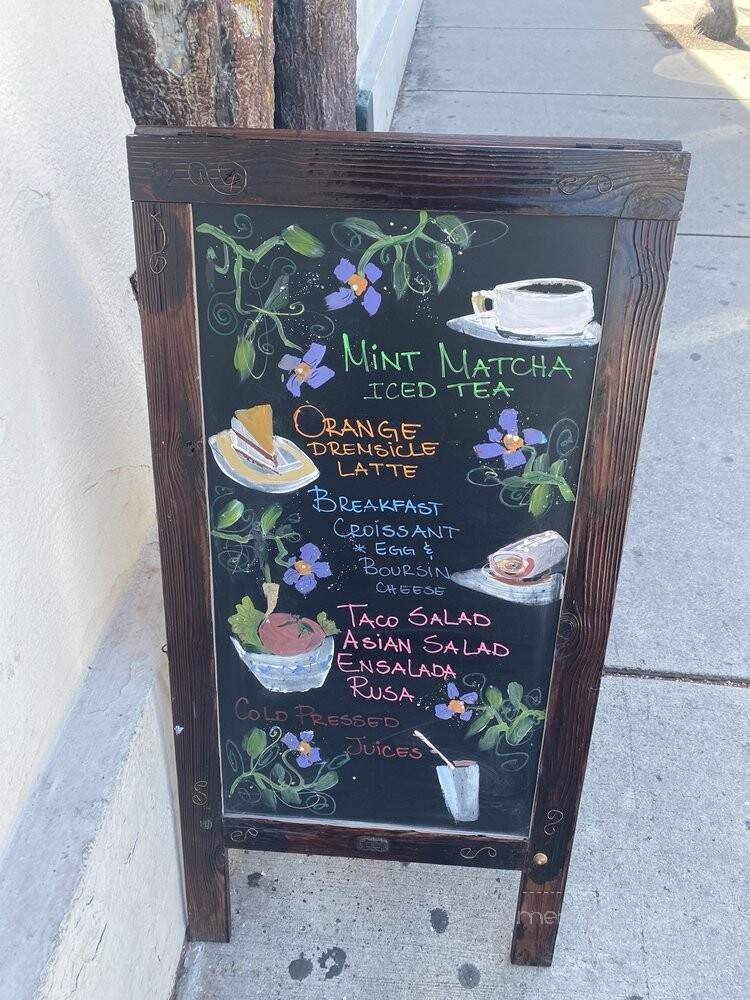 MINT MATCHA
ICED TEA
ORANGE
DREMSICLE
LATTE
BREAKFAST
CROISSANT
* EGG &
BOURSIN
CHEESE
TACO SALAD
ASIAN SALAD
ENSALADA
RUSA
COLD PRESSED
JUICES